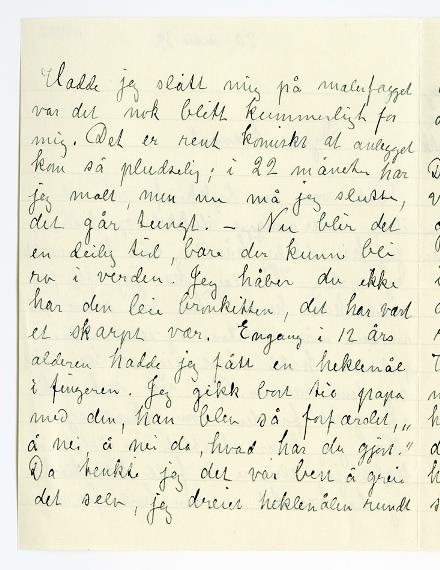 Hadde jeg slått mig på malerfagget
var det nok blitt kummerligt for
mig. Det er rent komiskt at anlegget
kom så pludselig; i 22 måneder har
jeg malt, men nu må jeg slutte,
det går tungt. – Nu blir det
en deilig tid, bare der kunn bli
ro i verden. Jeg håber du ikke
har den leie bronkitten, det har vært
et skarpt vær. Engang i 12 års
alderen hadde jeg fått en heklenål
i fingeren. Jeg gikk bort til papa
med den, han blev så forfærdet, „
å nei, å nei da, hvad har du gjort."
Da tenkte jeg det var best å greie
det selv, jeg dreiet heklenålen rundt